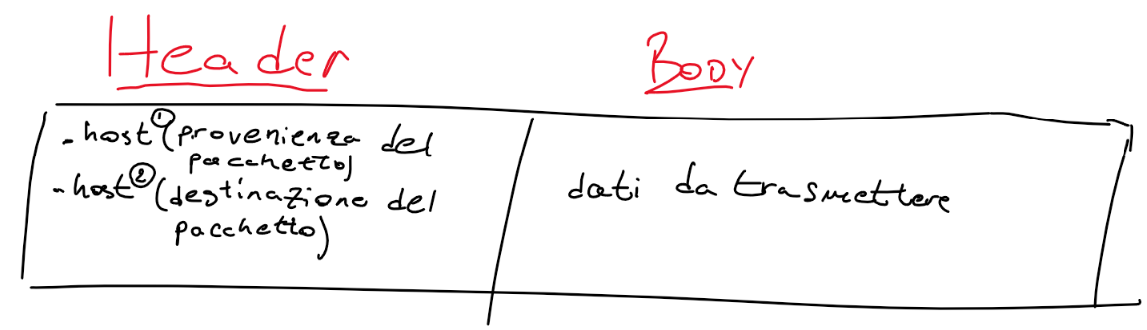 Header
Body
- host ① (provenienza del
pacchetto)
- host ② (destinazione del
pacchetto)
dati da trasmettere